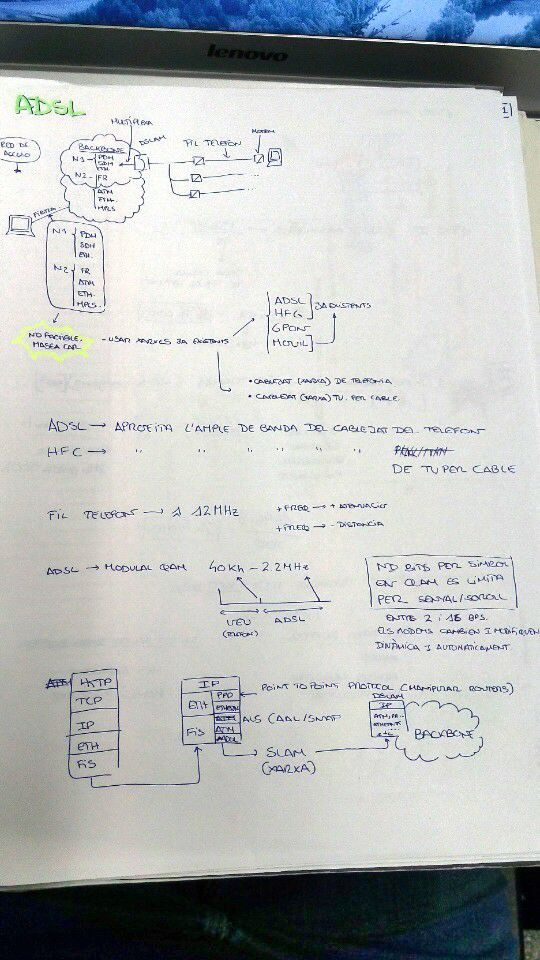 lenovo
ADSL
1
MULTIPLEXA
DSLAM
FIL TELEFON
MODEM
RED DE
BACKBONE
N1 PDH
SDH
ETH
N2 FR
ATM
ETH
MPLS
FIBRA
N1 PDH
SDH
ETH.
N2 FR
ATM
ETH.
MPLS
NO FACTIBLE,
MASSA CAR
- USAR XARXES JA EXISTENTS
ADSL
HFC
GPON
MOVIL
JA EXISTENTS
• CABLEJAT (XARXA) DE TELEFONIA
• CABLEJAT (XARXA) TV. PER CABLE
ADSL → APROFITA L'AMPLE DE BANDA DEL CABLEJAT DEL TELEFON
HFC → " " " " " "
DE TV PER CABLE
FIL TELEFON → 12MHz
+ FREQ → + ATENUACIÓ
+ FREQ → - DISTANCIA
ADSL → MODULAL QAM 40Kh - 2.2MHz
VEU ADSL
Nº BITS PER SIMBOL
EN QAM ES LIMITA
PER SENYAL/SOROLL
ENTRE 2 i 15 BPS.
ELS MODEMS CAMBIEN I MODIFIQUEN
DINÀMICA I AUTOMATICAMENT.
HTTP
TCP
IP
ETH
FIS
IP
ETH
FIS
ATM
POINT TO POINT PROTOCOL (MANIPULAR ROUTERS)
(AAL/SNAP
SLAM
(XARXA)
DSLAM
IP
BACKBONE